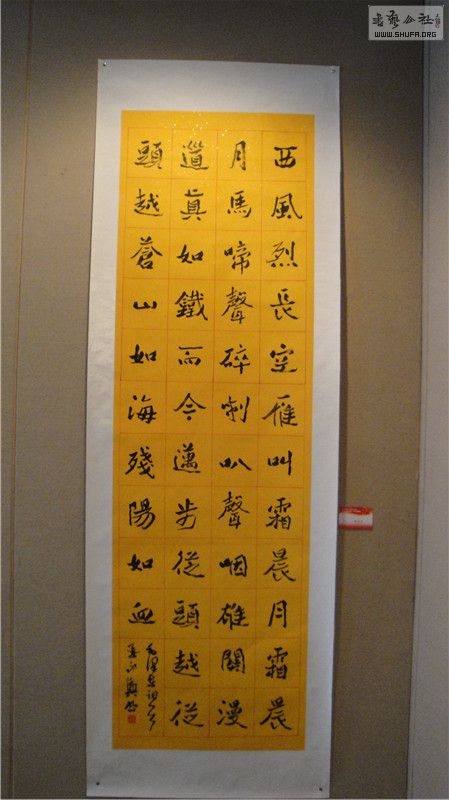 西風烈長空雁叫霜晨月霜晨
月馬啼聲碎喇叭聲咽雄關漫
道眞如鐵而今邁步從頭越從
頭越蒼山如海殘陽如血
毛澤東詞
書藝公社
WWW.SHUFA.ORG